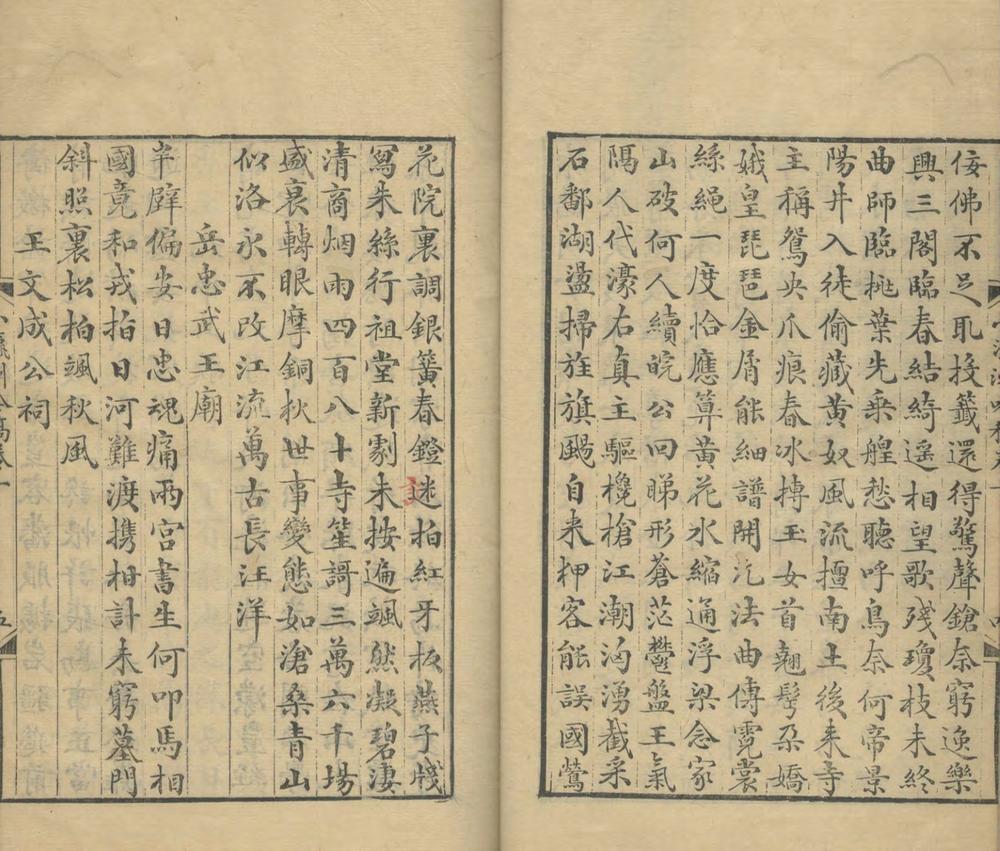 佞佛不足耻授籤還得驚聲鎗奈窮逸樂
興三閣臨春結綺遥相望歌殘瓊枝未終
曲師臨桃葉先乗艎愁聽呼烏奈何帝景
陽井入徒偷藏黄奴風流擅南土後来寺
主稱鴛央爪痕春冰摶玉女首翹髩朶嬌
娥皇琵琶金屑能細譜開氿法曲傳霓裳
絲繩一度恰應算黄花水縮通浮梁念家
山破何人續皖公回睇形蒼茫鬱盤王氣
隔人代濠右真主驅欃槍江潮洶湧截采
石鄱湖盪掃旌旗颺自来柙客能誤國鶯
花院裏調銀簧春鐙謎拍紅牙板燕子牋
寫朱絲行祖堂新劇未按遍颯然凝碧凄
清商烟雨四百八十寺笙謌三萬六千場
盛衰轉眼摩銅狄世事變態如滄桑青山
似洛永不改江流萬古長汪洋
岳忠武王廟
半壁偏安日忠魂痛兩宫書生何叩馬相
國竟和戎拍日河難渡携柑計未窮墓門
斜照裏松柏颯秋風
王文成公祠
五